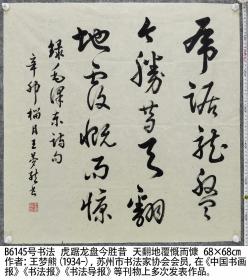 虎踞龙盘
今胜昔天翻
地覆慨而慷
录毛泽东诗句
辛卯榴月王梦熊书
B6145号书法 虎踞龙盘今胜昔 天翻地覆慨而慷 68×68cm
作者：王梦熊（1934-），苏州市书法家协会会员，在《中国书画
报》《书法报》《书法导报》等刊物上多次发表作品。